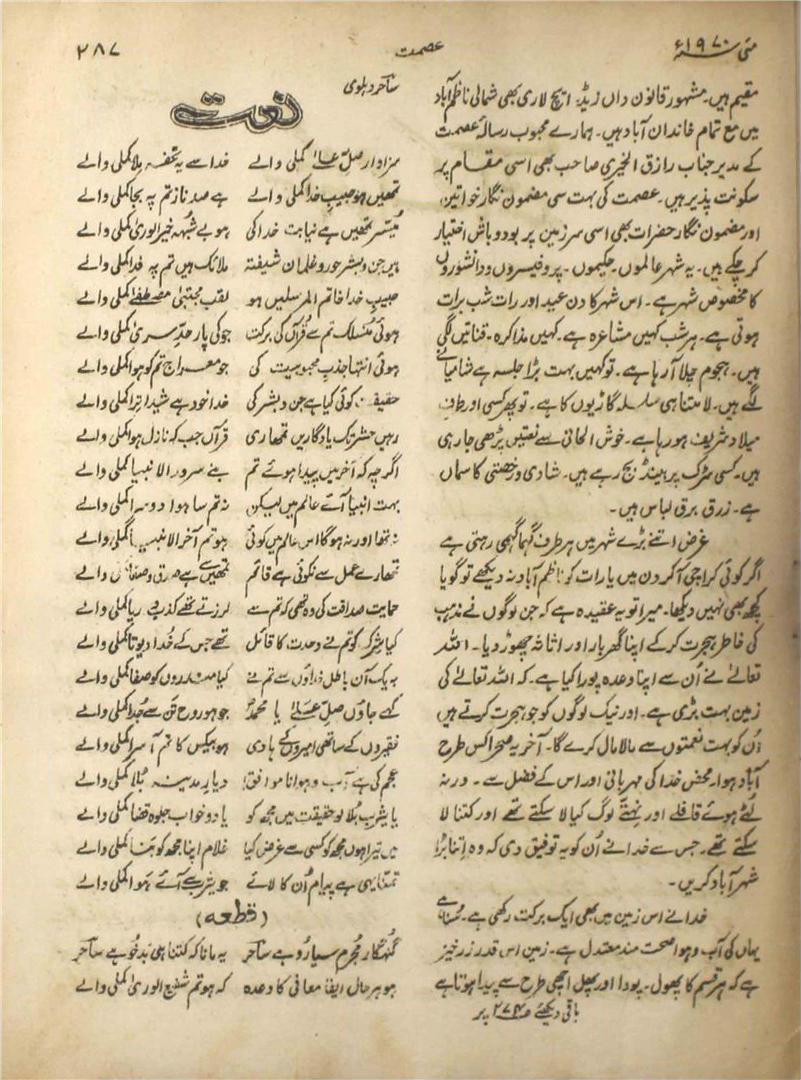 مئی سنہ ۱۹۷۰ء
عصمت
۲۸۷
مقیم ہیں۔ مشہور قانون داں زیڈ۔ ایچ لاری بھی شمالی ناظم آباد
میں مع تمام خاندان آباد ہیں۔ ہمارے محبوب رسالۂ عصمت
کے مدیر جناب رازق الخیری صاحب بھی اسی مقام پر
سکونت پذیر ہیں۔ عصمت کی بہت سی مضمون نگار خواتین
اور مضمون نگار حضرات بھی اسی سرزمین پر بود و باش اختیار
کر چکے ہیں۔ یہ شہر عالموں۔ حکیموں۔ پروفیسروں و دانشوروں
کا مخصوص شہر ہے۔ اس شہر کا دن عید اور رات شب برات
ہوتی ہے۔ ہر شب کہیں مشاعرہ ہے۔ کہیں مذاکرہ۔ قناتیں لگی
ہیں۔ ہجوم چلا آ رہا ہے۔ تو کہیں بہت بڑا جلسہ ہے شامیانے
لگے ہیں۔ لامتناہی سلسلہ گاڑیوں کا ہے۔ تو پھر کسی اور طرف
میلاد شریف ہو رہا ہے۔ خوش الحانی سے نعتیں پڑھی جا رہی
ہیں۔ کسی سڑک پر بینڈ بج رہے ہیں۔ شادی و رخصتی کا سماں
ہے۔ زرق برق لباس ہیں۔
غرض اتنے بڑے شہر میں ہر طرف گہما گہمی رہتی ہے
اگر کوئی کراچی آ کر دن میں یا رات کو ناظم آباد نہ دیکھے تو گویا
کچھ بھی نہیں دیکھا۔ میرا تو یہ عقیدہ ہے کہ جن لوگوں نے مذہب
کی خاطر ہجرت کر کے اپنا گھر بار اور اثاثہ چھوڑ دیا۔ اللہ
تعالےٰ نے اُن سے اپنا وعدہ پورا کیا ہے۔ کہ اللہ تعالےٰ کی
زمین بہت بڑی ہے۔ اور نیک لوگوں کو جو ہجرت کرتے ہیں
اُن کو بہت نعمتوں سے مالا مال کرے گا۔ آخر یہ صحرا کس طرح
آباد ہوا۔ محض خدا کی مہربانی اور اس کے فضل سے۔ ورنہ
لٹے ہوئے قافلے اور نہتّے لوگ کیا لا سکتے تھے اور کتنا لا
سکتے تھے۔ جس سے خدا نے اُن کو یہ توفیق دی کہ وہ اتنا بڑا
شہر آباد کریں۔
خدا نے اس زمین میں بھی ایک برکت رکھی ہے۔
یہاں کی آب و ہوا صحت مند معتدل ہے۔ زمین اس قدر زرخیز
ہے کہ ہر قسم کا پھول۔ پودا اور پھل اچھی طرح سے پیدا ہوتا ہے
باقی دیکھئے صہ ۲۷۴ پر
ساحر دہلوی
نعت
سزاوار صلِّ علےٰ کملی والے خدا سے یہ تحفہ ملا کملی والے
تمھیں ہو حبیبِ خدا کملی والے ہے صد ناز تم پہ بجا کملی والے
مُیسّر تمھیں ہے نیابت خدا کی ہو بے شُبہہ خیر الوریٰ کملی والے
ہیں جن و بشر حور و غلمان شیفتہ ملائک ہیں تم پہ فدا کملی والے
حبیبِ خدا خاتم المرسلیں ہو لقب مجتبیٰ مصطفےٰ کملی والے
ہوئی منسلک تم سے قرآں کی برکت جو کی پار حدِّ سریٰ کملی والے
ہوئی انتہا جذبِ محبوبیت کی جو معراج تم کو ہوا کملی والے
حقیقت کوئی کیا ہے جن و بشر کی خدا خود ہے شیدا ترا کملی والے
رہیں حشر تک یادگاریں تمھاری قرآں جب کہ نازل ہوا کملی والے
اگرچہ کہ آخر میں پیدا ہوئے تم بنے سرور الانبیا کملی والے
بہت انبیا آئے عالم میں لیکن نہ تم سا ہوا دوسرا کملی والے
نہ تھا اور نہ ہوگا اس عالم میں کوئی ہو تم آخر الانبیا کملی والے
تمھارے عمل سے نکوئی ہے قائم تمھیں سے ہے صدق و صفا کملی والے
حمایت صداقت کی وہ تھی کہ تم سے لرزتے تھے کذب و ریا کملی والے
کیا شرک کو تم نے وحدت کا قائل تھے جس کے خُدا دیوتا کملی والے
بہ یک آن باطل خداؤں سے تم نے کیا مندروں کو صفا کملی والے
کہے جاؤں صلِّ علےٰ یا محمدؐ جو ہو روح تن سے جُدا کملی والے
فقیروں کے ساتھی امیروں کے ہادی ہو بیکس کا تم آسرا کملی والے
عجم کی ہے آب و ہوا نا موافق دیارِ مدینہ بُلا کملی والے
یا یثرب بُلا لو حقیقت میں مجھ کو یا دو خواب جلوہ قضا کملی والے
میں تیرا ہوں مجھ کو کسی سے غرض کیا غلام اپنا مجھ کو بنا کملی والے
تمنّا یہی ہے پیام اُن کا لائے جو یثرب سے آئے ہوا کملی والے
(قطعہ)
گنہگار مُجرم سیاہ رو ہے ساحر یہ مانا کہ کتنا ہی بدخُو ہے ساحر
ہو ہر حال ایفا معافی کا وعدہ کہ ہو تم شفیع الوریٰ کملی والے